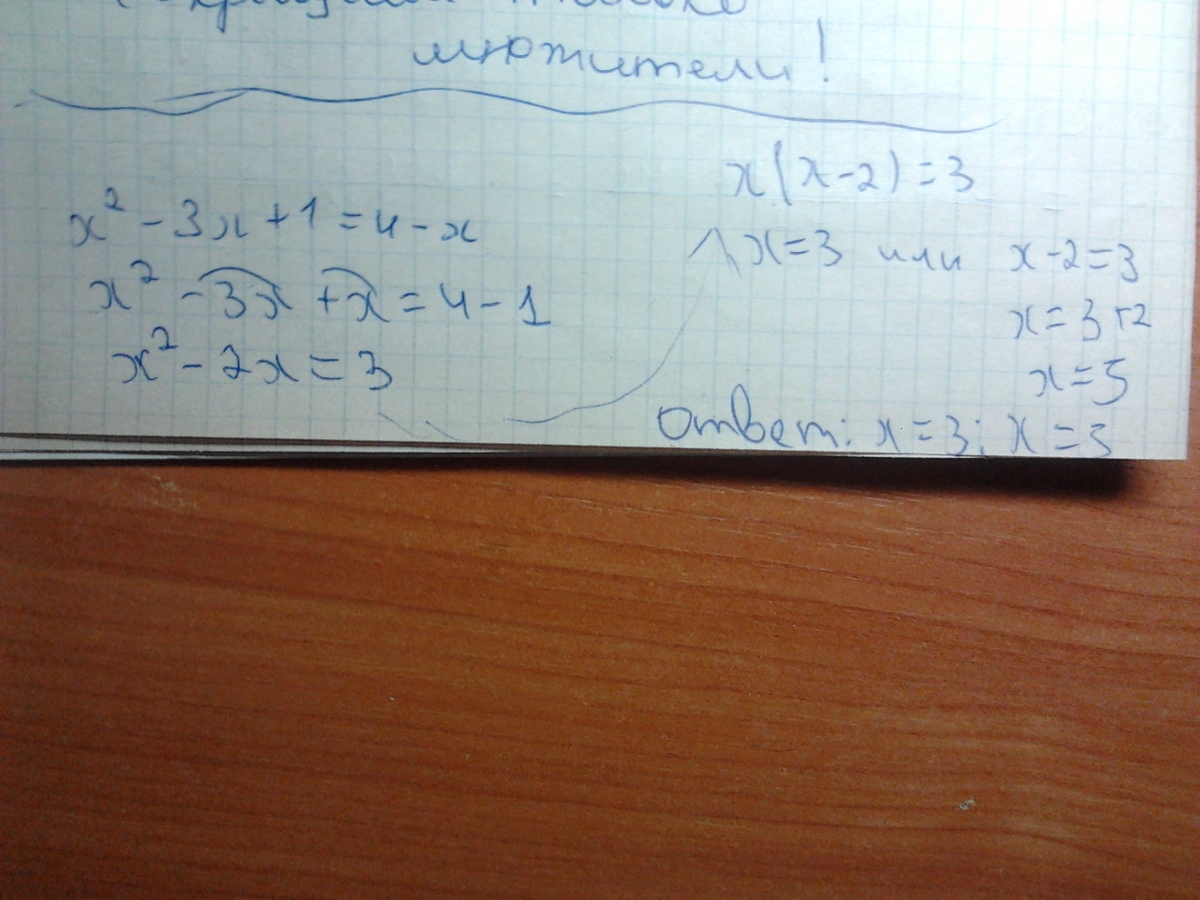 множители!
x² - 3x + 1 = 4 - x
x² - 3x + x = 4 - 1
x² - 2x = 3
x(x-2) = 3
x = 3 или x - 2 = 3
x = 3 + 2
x = 5
Ответ: x = 3; x = 5